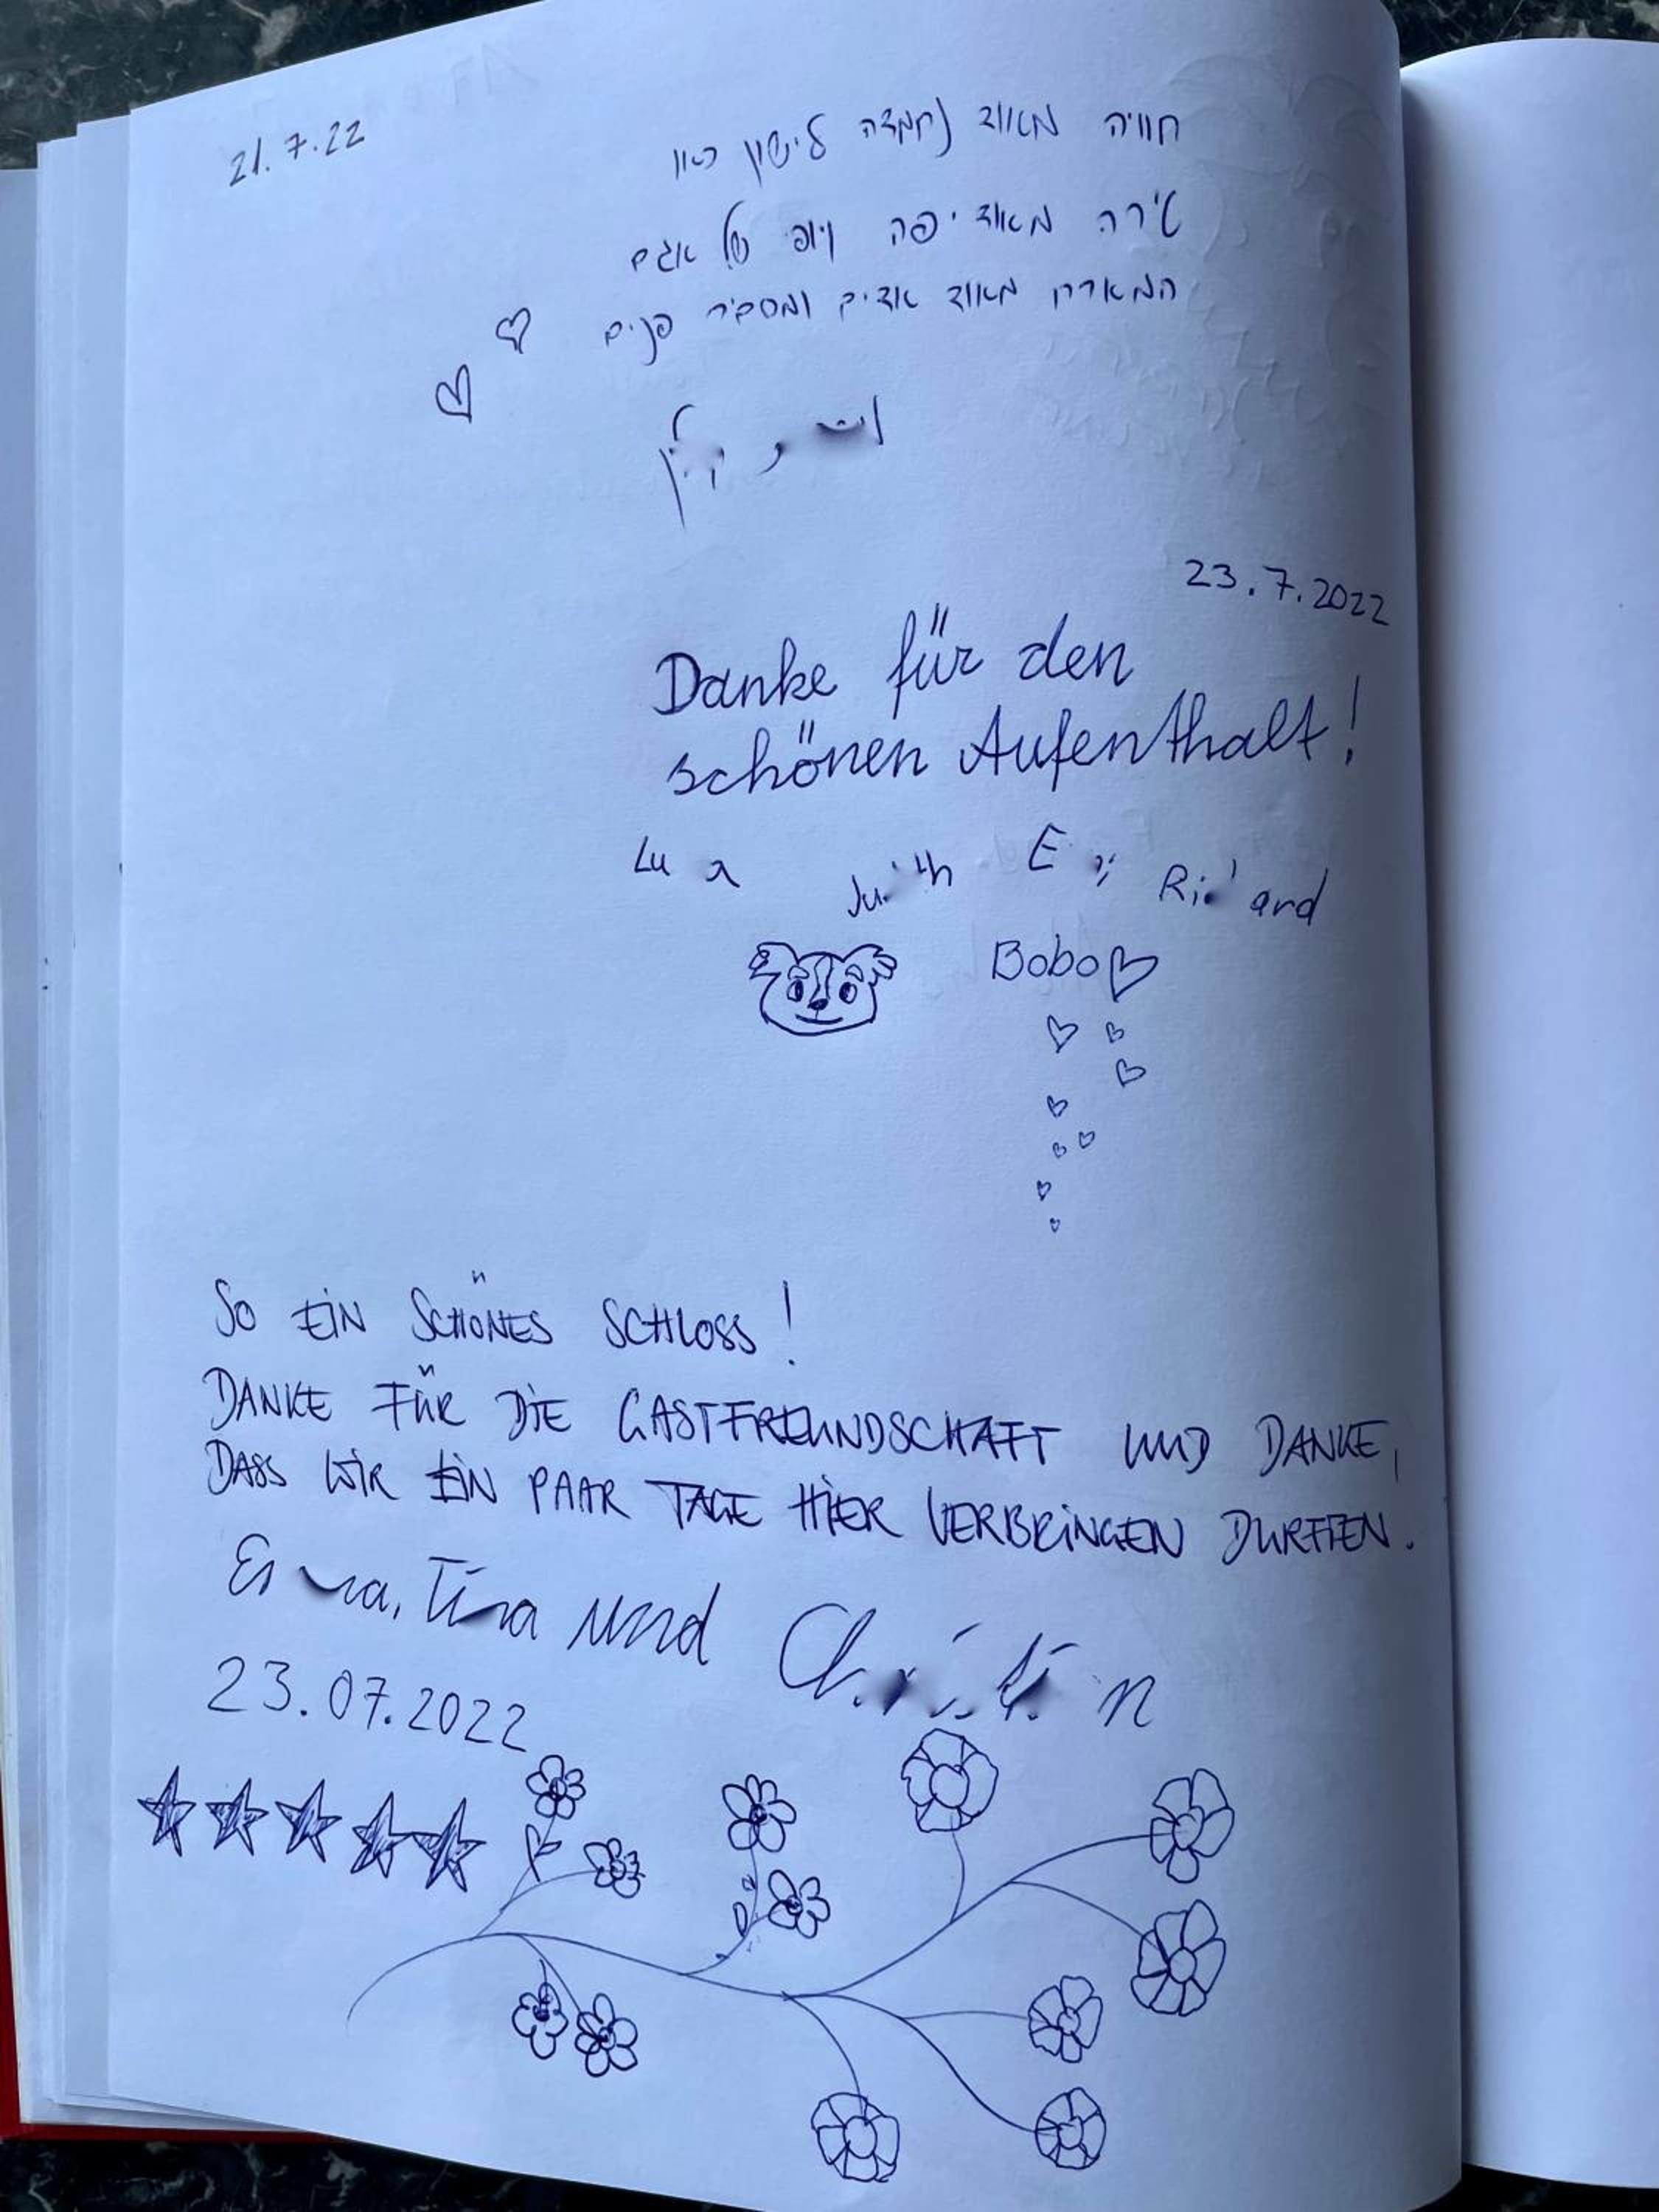 21.7.22
חוויה מאווד נחמדה לישון כאן
טירה מאוד יפה ונוף של אגם
המארח מאוד אדיב ומסביר פנים
23.7.2022
Danke für den
schönen Aufenthalt!
Bobo
SO EIN SCHÖNES SCHLOSS!
DANKE FÜR DIE GASTFREUNDSCHAFT UND DANKE,
DASS WIR EIN PAAR TAGE HIER VERBRINGEN DURFTEN.
und
23.07.2022